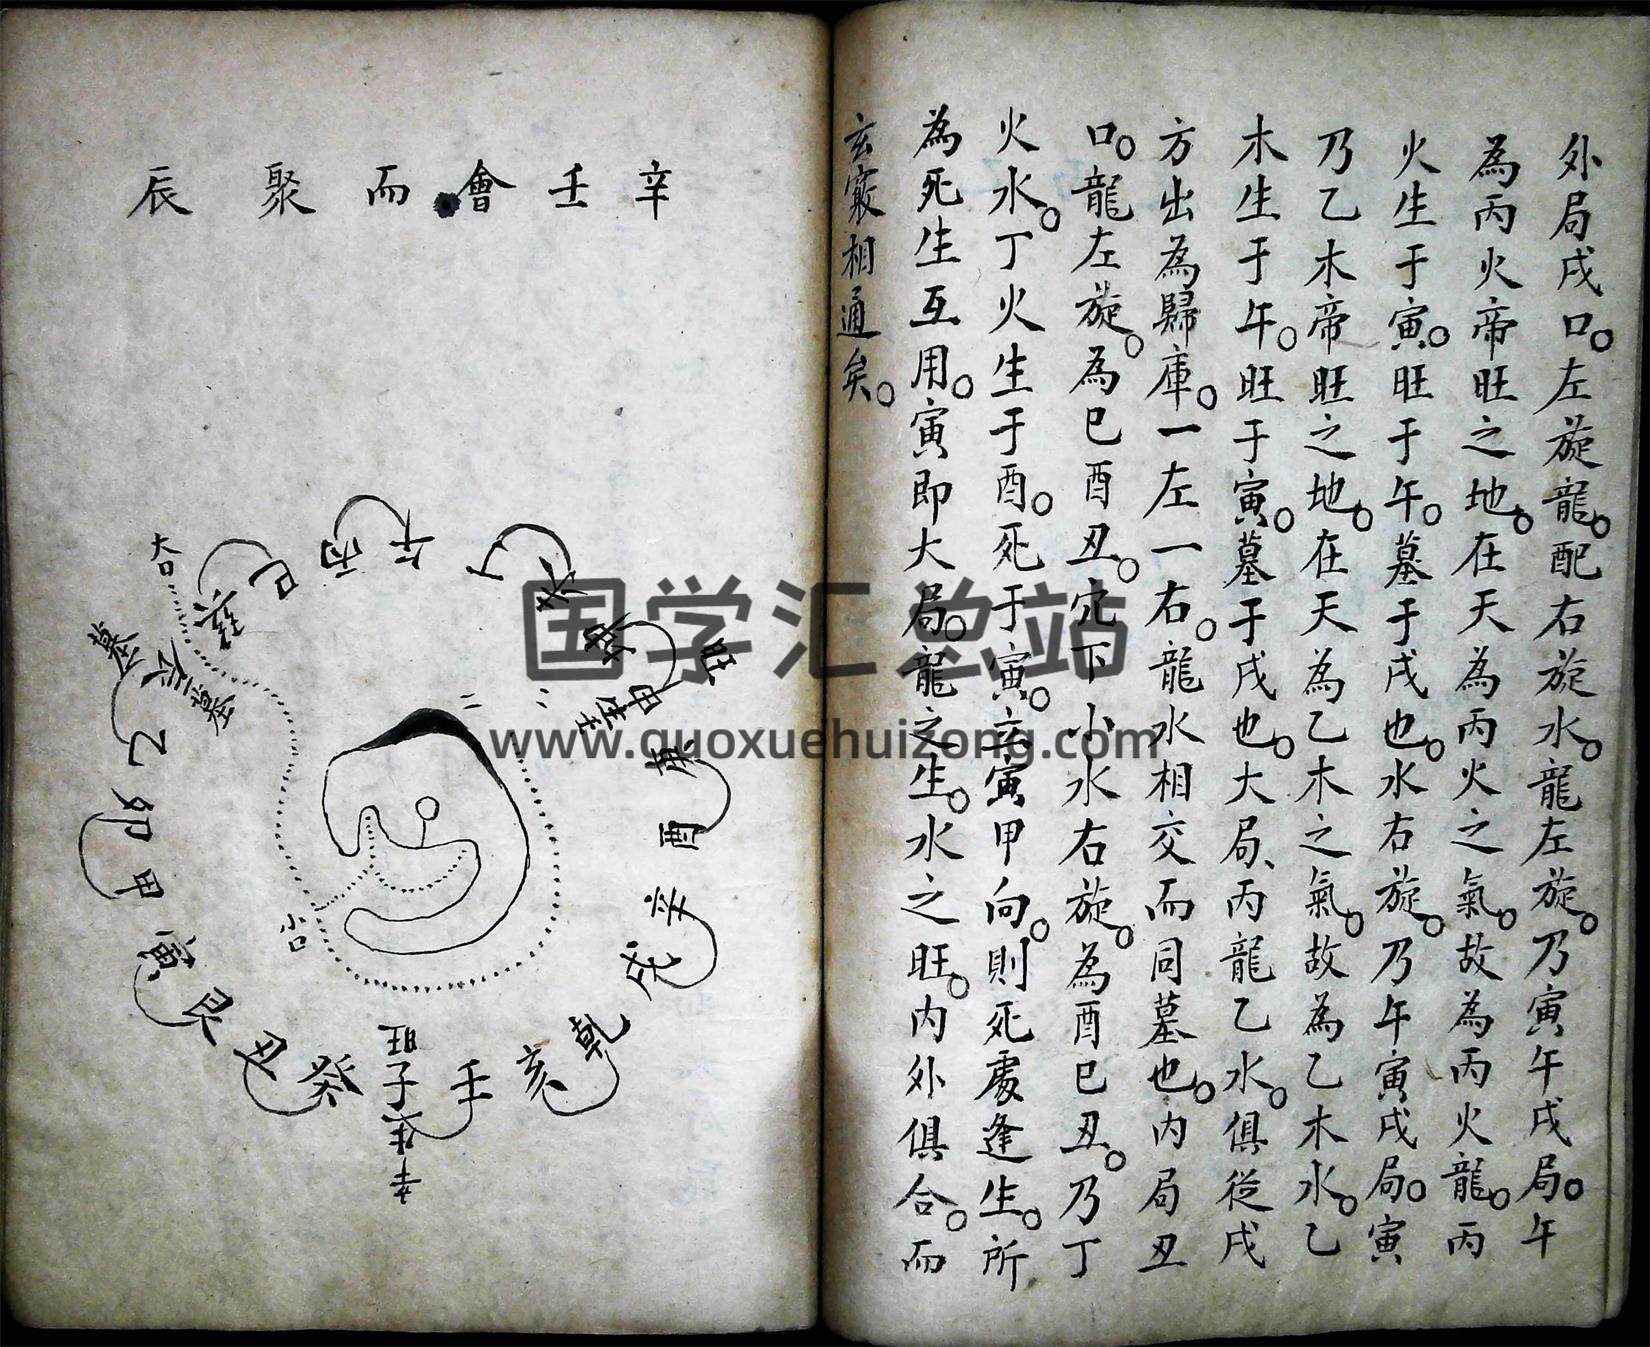 外局戌口。左旋龍。配右旋水。龍左旋。乃寅午戌局。午
為丙火帝旺之地。在天為丙火之氣。故為丙火龍。丙
火生于寅。旺于午。墓于戌也。水右旋。乃午寅戌局。寅
乃乙木帝旺之地。在天為乙木之氣。故為乙木水。乙
木生于午。旺于寅。墓于戌也。大局、丙龍乙水。俱從戌
方出為歸庫。一左一右。龍水相交而同墓也。内局丑
口。龍左旋。為巳酉丑。穴下小水右旋。為酉巳丑。乃丁
火水。丁火生于酉。死于寅。立寅甲向。則死處逢生。所
為死生互用。寅即大局。龍之生。水之旺。内外俱合。而
玄竅相通矣。
辛壬會而聚辰
丁
午
丙
巳
大口
墓
墓
乙
卯
甲
寅
艮
丑
癸
旺
子
壬
亥
乾
戌
辛
酉
庚
申
生
旺
小口
国学汇总站
www.guoxuehuizong.com